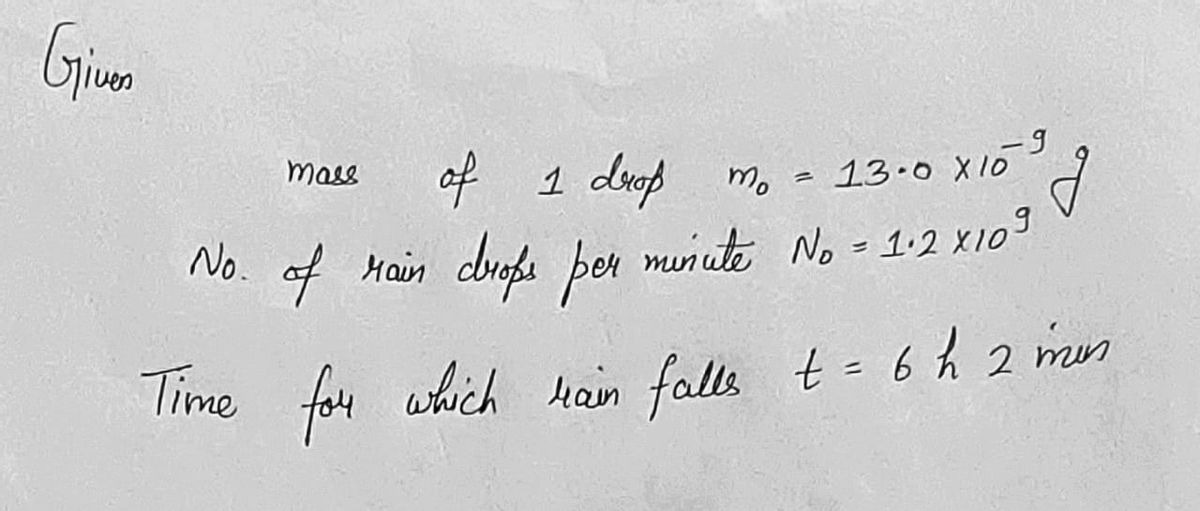 Given
mass of 1 drop m₀ = 13.0 x10⁻⁹ g
No. of rain drops per minute N₀ = 1.2 x10⁹
Time for which rain falls t = 6 h 2 min